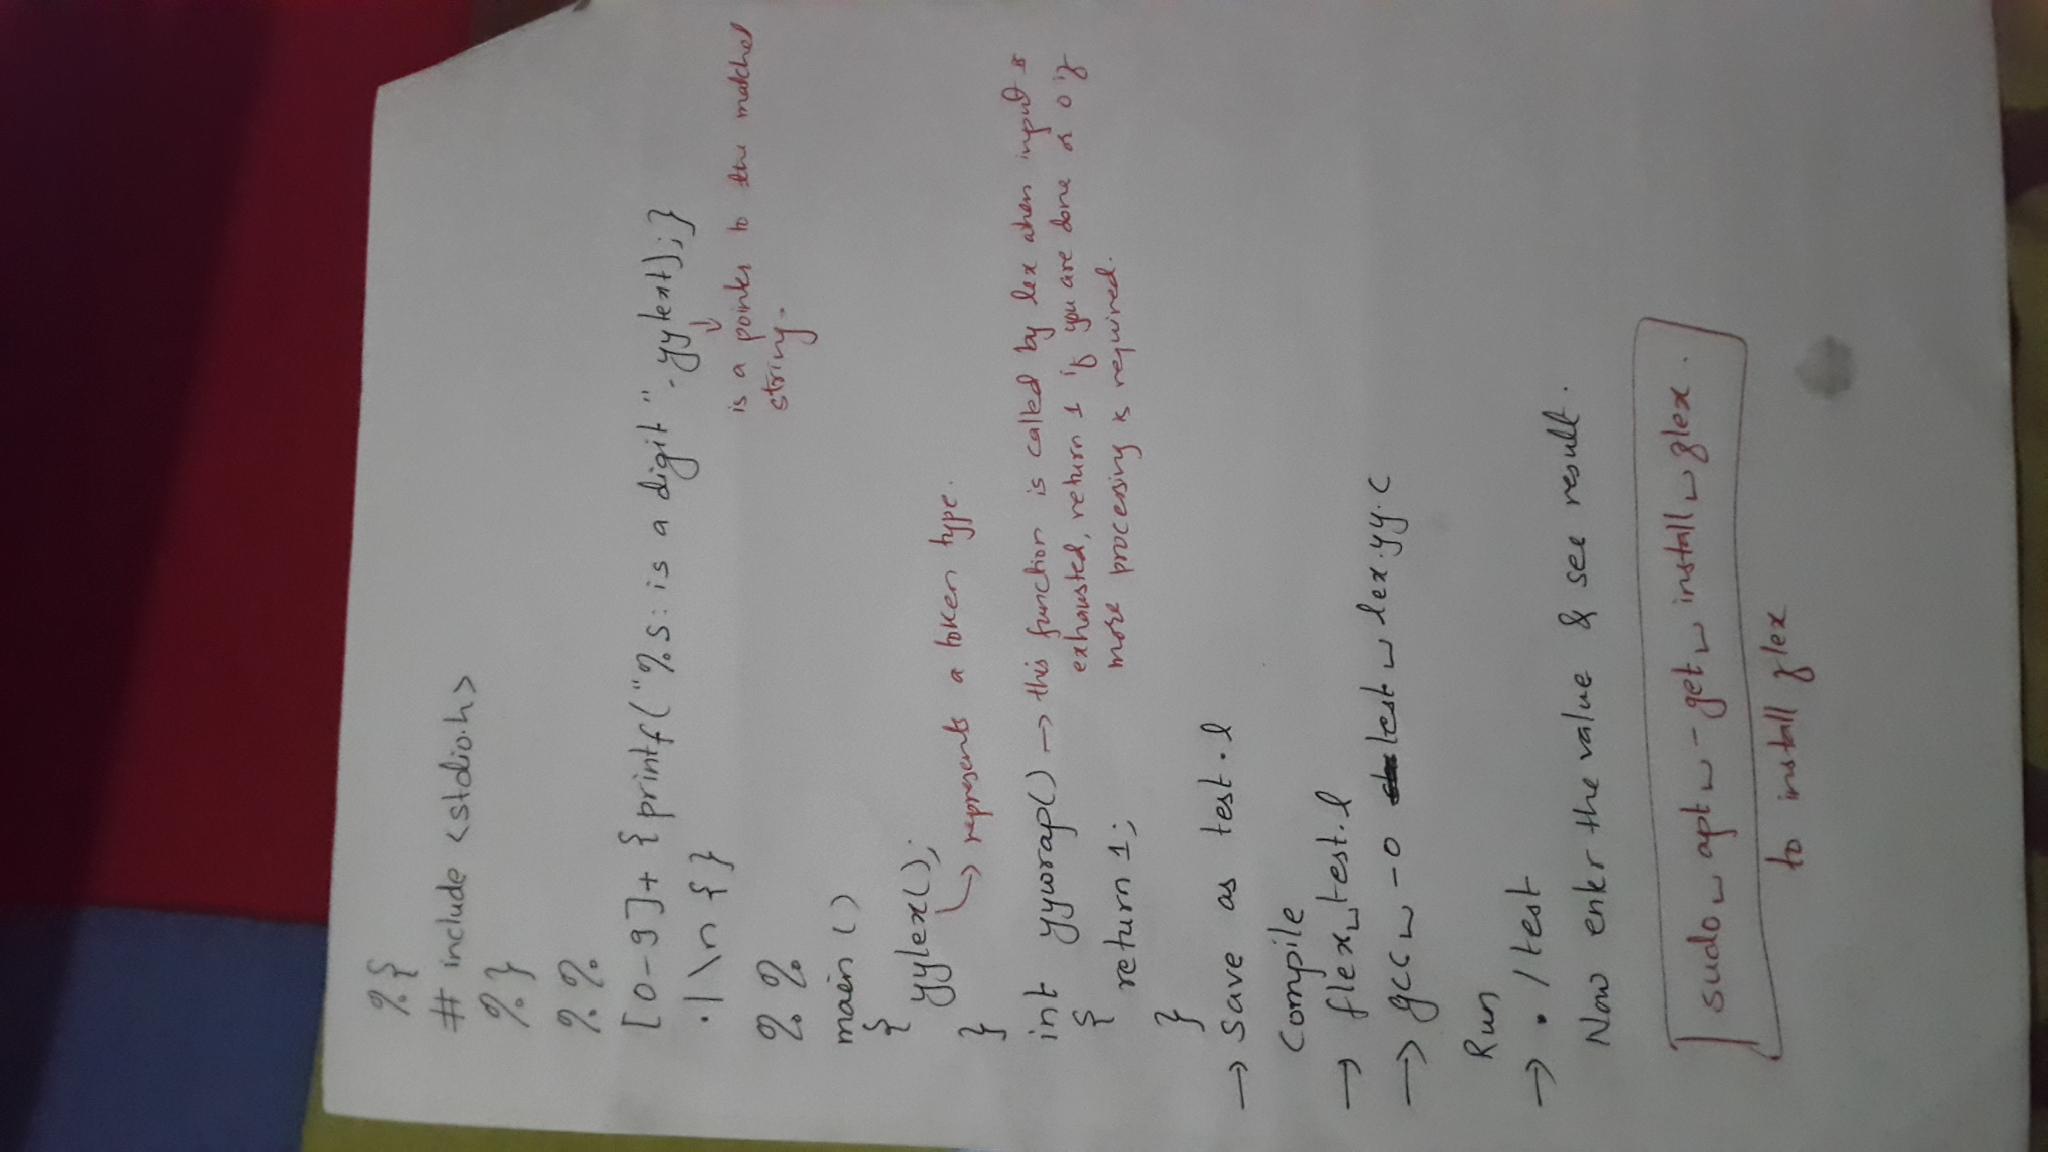 %{
# include <stdio.h>
%}
%%
[0-9]+ {printf("%s: is a digit", yytext);}
.|\n {}
is a pointer to the matched
string.
%%
main ()
{
yylex();
→ represents a token type.
}
int yywrap() → this function is called by lex when input is
exhausted, return 1 if you are done or 0 if
more processing is required.
{
return 1;
}
→ save as test.l
Compile
→ flex␣test.l
→ gcc␣-o test␣lex.yy.c
Run
→ ./test
Now enter the value & see result.
sudo␣apt␣-get␣install␣flex.
to install flex